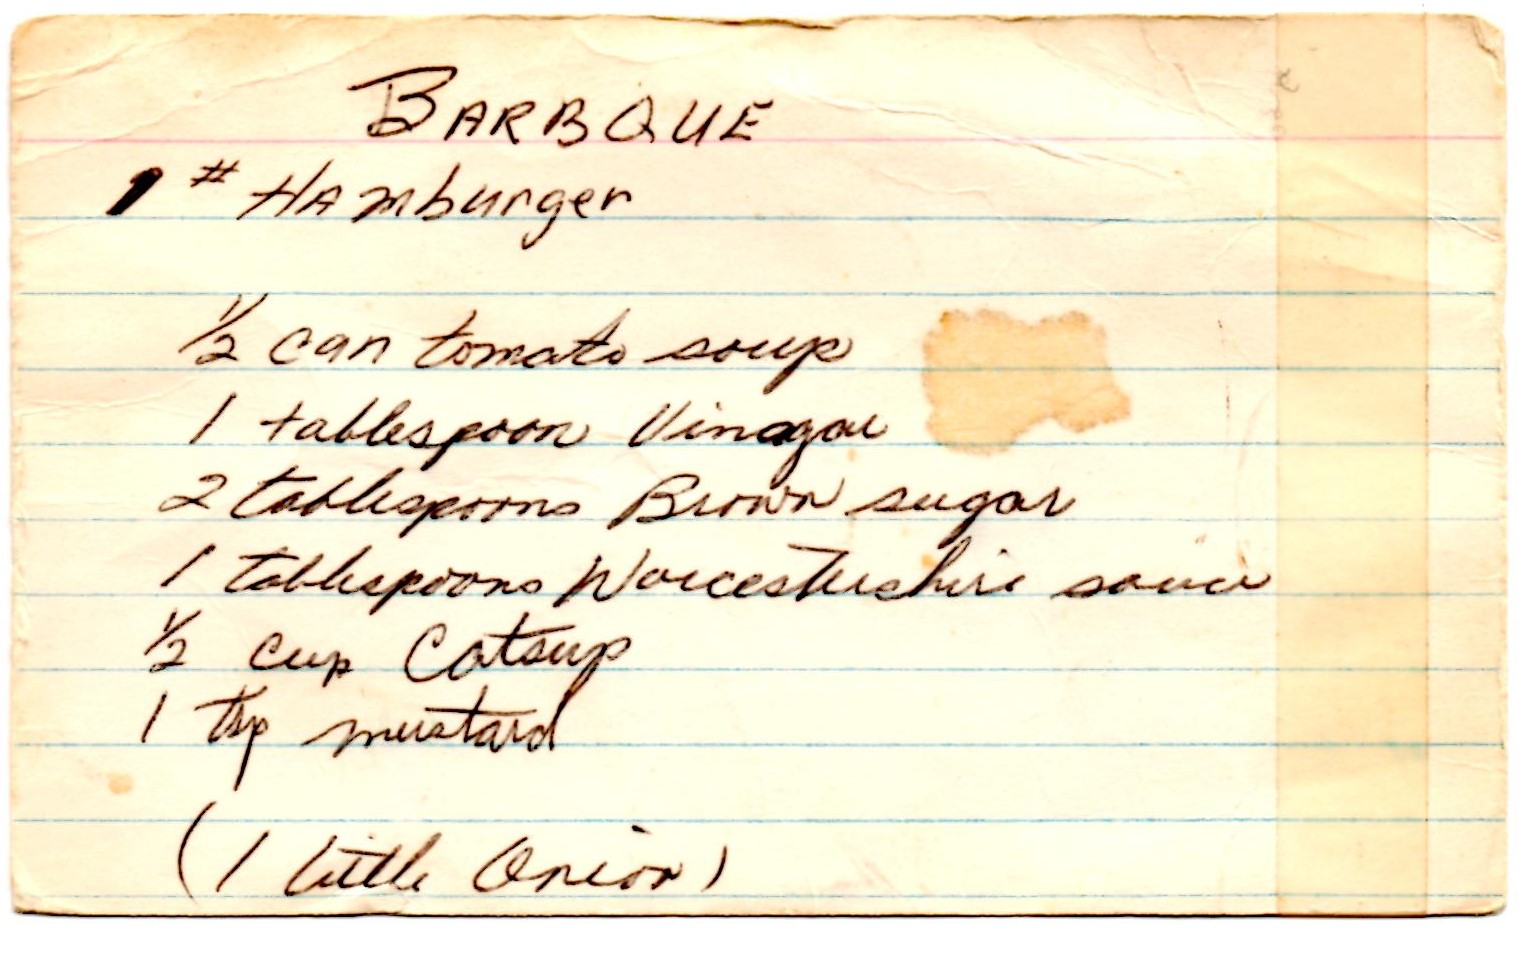 BARBQUE
1 # HAmburger
1/2 can tomato soup
1 tablespoon Vinagar
2 tablespoons Brown sugar
1 tablespoons Worcestershire sauce
1/2 cup Catsup
1 tsp mustard
(1 little Onion)